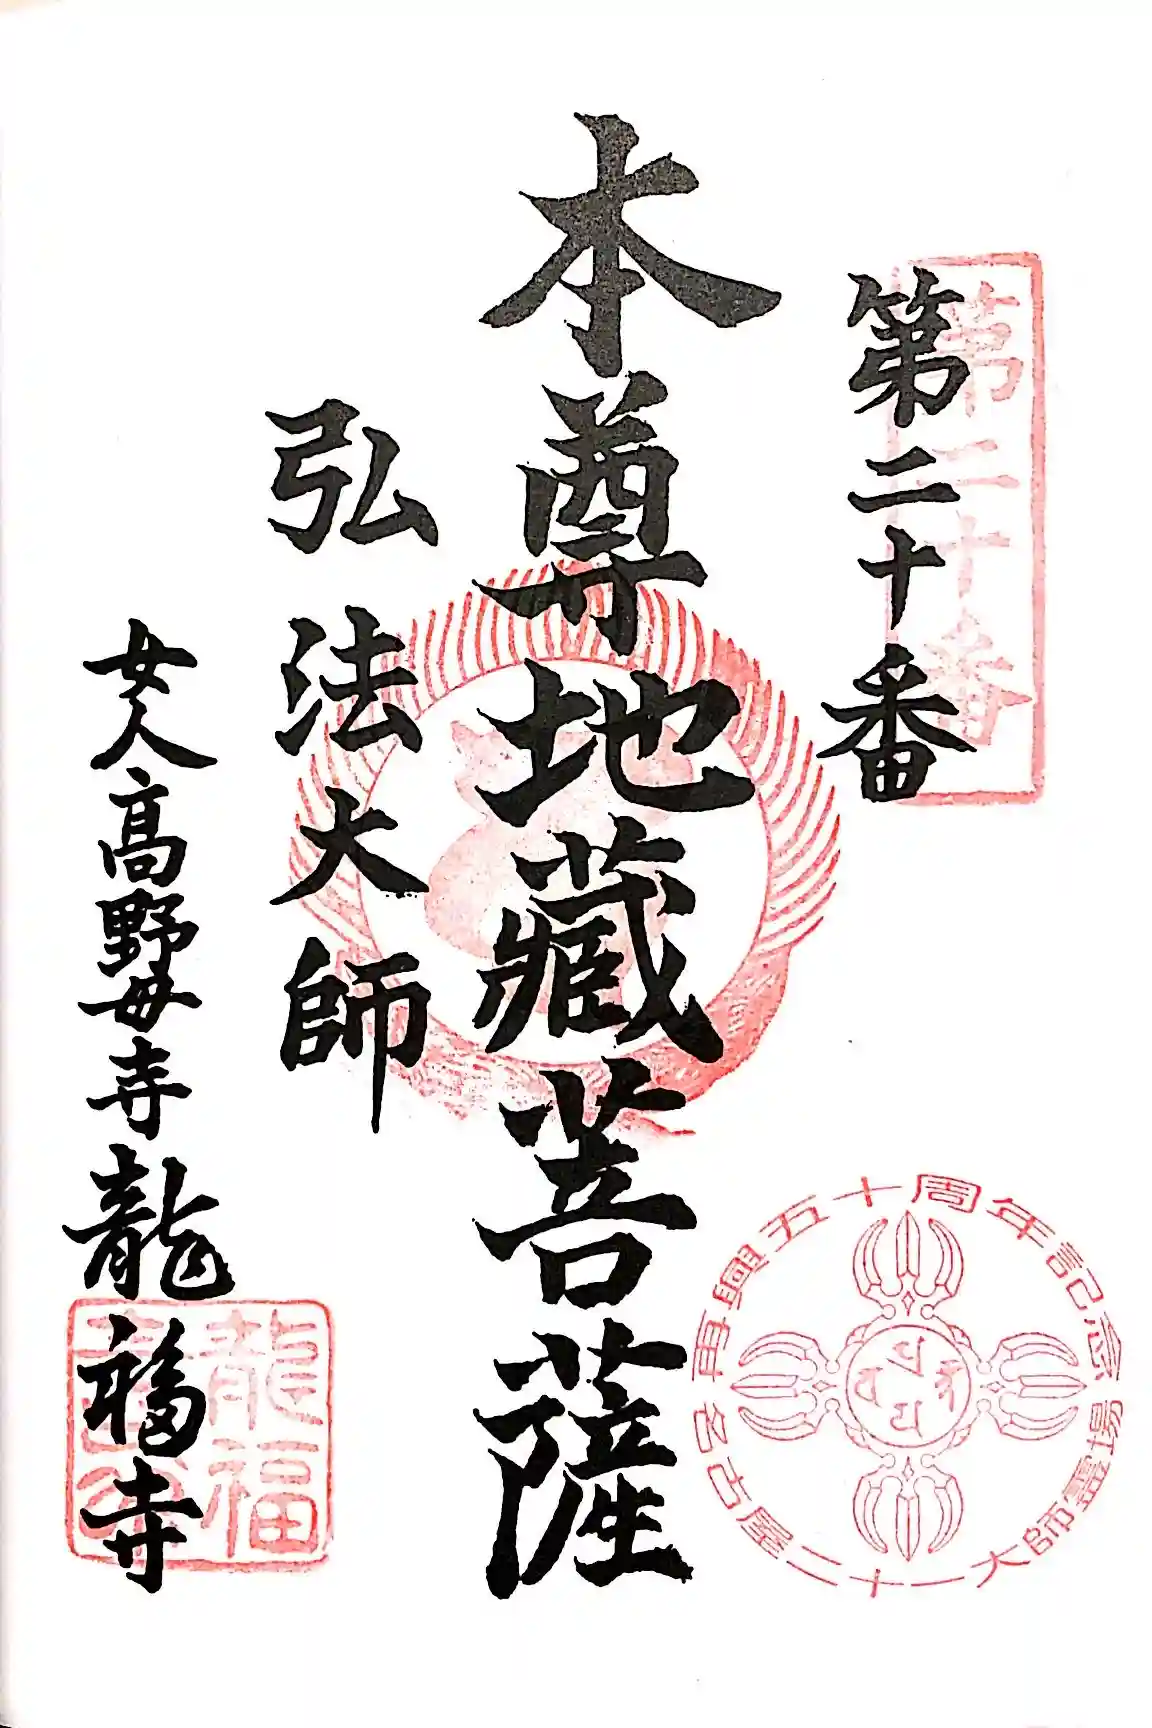 第二十番
第二十番
本尊地藏菩薩
弘法大師
女人高野毋寺龍福寺
龍福
再興五十周年記念
名古屋二十一大師霊場